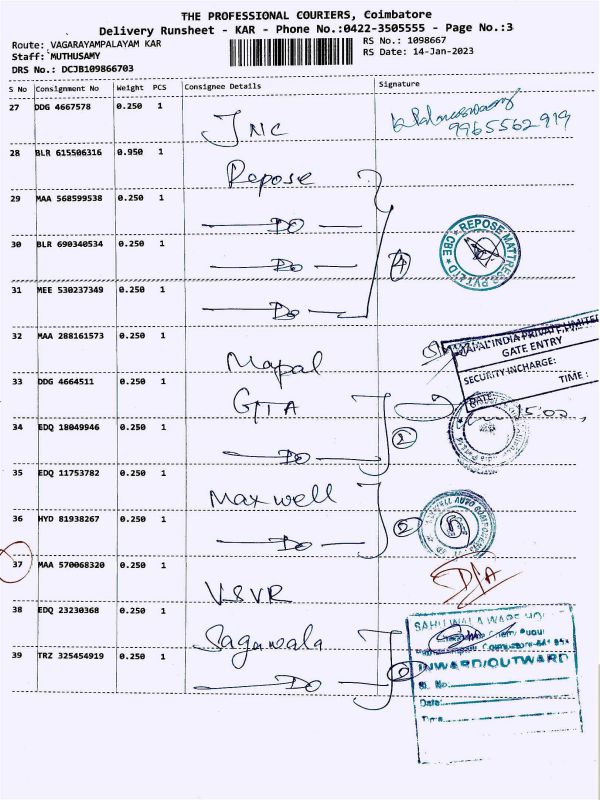 THE PROFESSIONAL COURIERS, Coimbatore
Delivery Runsheet - KAR - Phone No.:0422-3505555 - Page No.:3
Route: VAGARAYAMPALAYAM KAR
RS No.: 1098667
Staff: MUTHUSAMY
RS Date: 14-Jan-2023
DRS No.: DCJB109866703
S No Consignment No Weight PCS Consignee Details Signature
27 DDG 4667578 0.250 1 JNC
9965562919
28 BLR 615506316 0.950 1 Repose
29 MAA 568599538 0.250 1 Do
30 BLR 690340534 0.250 1 Do 4
REPOSE MATTRESS PVT LTD CBE
31 MEE 530237349 0.250 1 Do
32 MAA 288161573 0.250 1 Mapal
MAPAL INDIA PRIVATE LIMITED
GATE ENTRY
SECURITY INCHARGE:
DATE: TIME :
33 DDG 4664511 0.250 1 GTTA
34 EDQ 18049946 0.250 1 Do 2
35 EDQ 11753782 0.250 1 Maxwell
36 HYD 81938267 0.250 1 Do 2
37 MAA 570068320 0.250 1 VSVR
38 EDQ 23230368 0.250 1 Saguwala
39 TRZ 325454919 0.250 1 Do
SAHUWALA WAREHOU
INWARD/OUTWARD
Sl. No.
Date:
Time